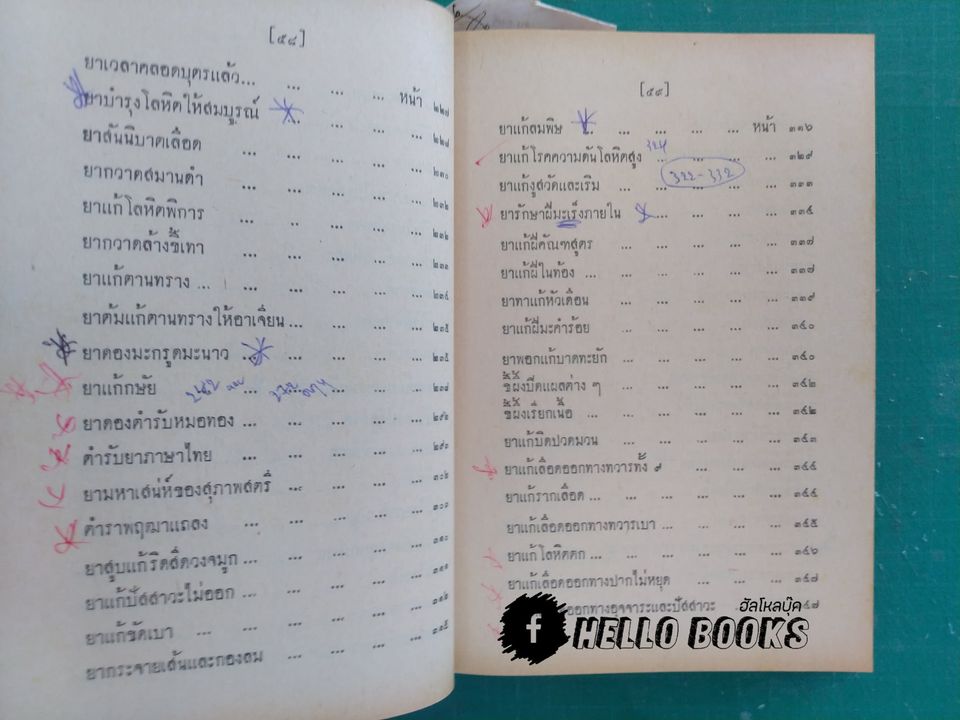 [๕๘]
ยาเวลาคลอดบุตรแล้ว... ... ... ... หน้า ๒๒๗
ยาบำรุงโลหิตให้สมบูรณ์ ... ... ... ๒๒๘
ยาสันนิบาตเลือด ... ... ... ...
ยากวาดสมานดำ ... ... ... ... ๒๓๐
ยาแก้โลหิตพิการ ... ... ... ... ๒๓๒
ยากวาดล้างขี้เทา ... ... ... ... ๒๓๓
ยาแก้ตานทราง ... ... ... ... ... ๒๓๔
ยาต้มแก้ตานทรางให้อาเจียน ... ... ... ... ๒๓๕
ยาดองมะกรูดมะนาว ... ... ... ... ๒๓๕
ยาแก้กษัย ... ... ... ... ๒๓๗
ยาดองตำรับหมอทอง ... ... ... ... ๒๙๒
ตำรับยาภาษาไทย ... ... ... ... ๒๙๓
ยามหาเสน่ห์ของสุภาพสตรี ... ... ... ... ๓๐๒
ตำราพฤฒาแถลง ... ... ... ...
ยาสูบแก้ริดสีดวงจมูก ... ... ... ... ๓๑๐
ยาแก้ปัสสาวะไม่ออก ... ... ... ...
ยาแก้ขัดเบา ... ... ... ... ...
ยากระจายเส้นและกองลม ... ... ... ...
[๕๙]
ยาแก้ลมพิษ ... ... ... ... ... หน้า ๓๑๖
324
ยาแก้โรคความดันโลหิตสูง ... ... ... ... ๓๒๙
322-332
ยาแก้งูสวัดและเริม ... ... ... ... ๓๓๓
ยารักษาฝีมะเร็งภายใน ... ... ... ๓๓๕
ยาแก้ฝีคัณฑสูตร ... ... ... ... ๓๓๗
ยาแก้ฝีในท้อง ... ... ... ... ... ๓๓๗
ยาทาแก้หัวเดือน ... ... ... ... ๓๓๙
ยาแก้ฝีมะคำร้อย ... ... ... ... ๓๔๐
ยาพอกแก้บาดทะยัก ... ... ... ... ๓๔๐
ขี้ผึ้งปิดแผลต่าง ๆ ... ... ... ... ๓๔๒
ขี้ผึ้งเรียกเนื้อ ... ... ... ... ... ๓๔๒
ยาแก้บิดปวดมวน ... ... ... ... ๓๔๓
ยาแก้เลือดออกทางทวารทั้ง ๙ ... ... ... ๓๔๔
ยาแก้รากเลือด ... ... ... ... ... ๓๔๔
ยาแก้เลือดออกทางทวารเบา ... ... ... ... ๓๔๕
ยาแก้โลหิตตก ... ... ... ... ... ๓๔๖
ยาแก้เลือดออกทางปากไม่หยุด ... ... ... ๓๔๗
ออกทางอุจจาระและปัสสาวะ ... ๔๗
ฮัลโหลบุ๊ค
f HELLO BOOKS